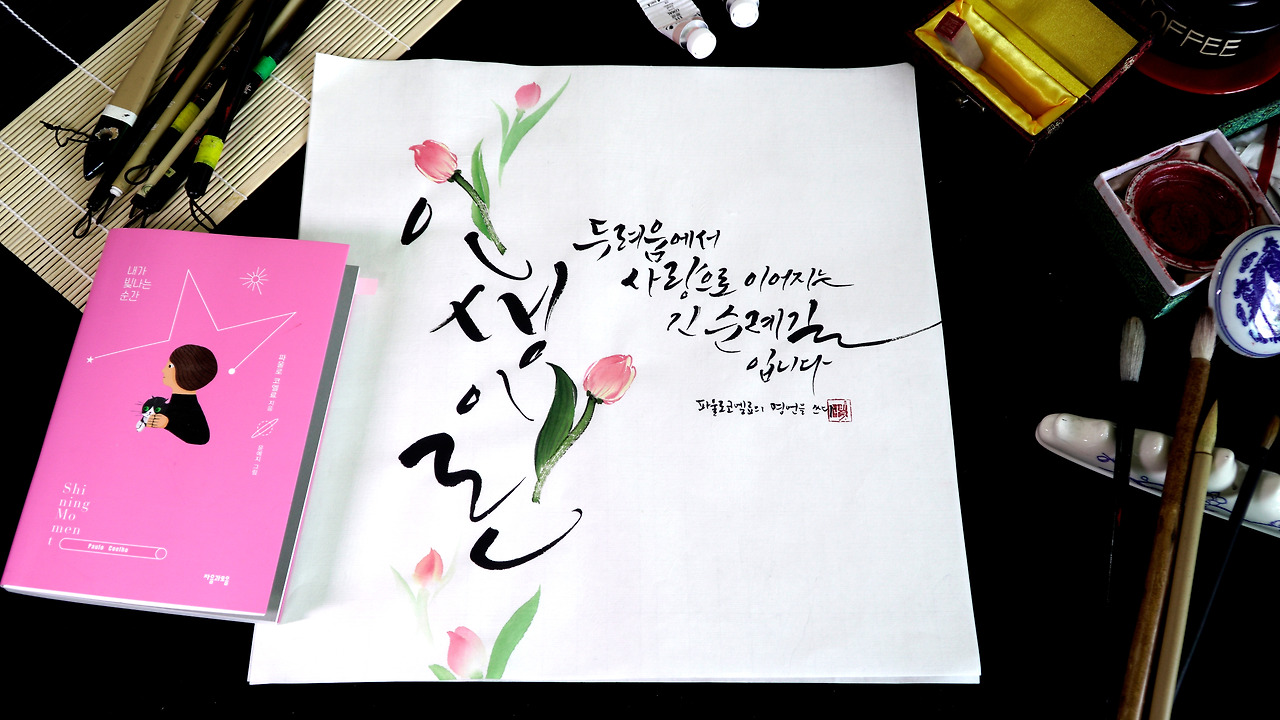 내가
빛나는
순간
파울로 코엘료 지음
윤예지 그림
Shi
ning
Mo
men
t
Paulo Coelho
자음과모음
인
생
이
란
두려움에서
사랑으로 이어지는
긴 순례길
입니다
파울로코엘료의 명언을 쓰다
COFFEE